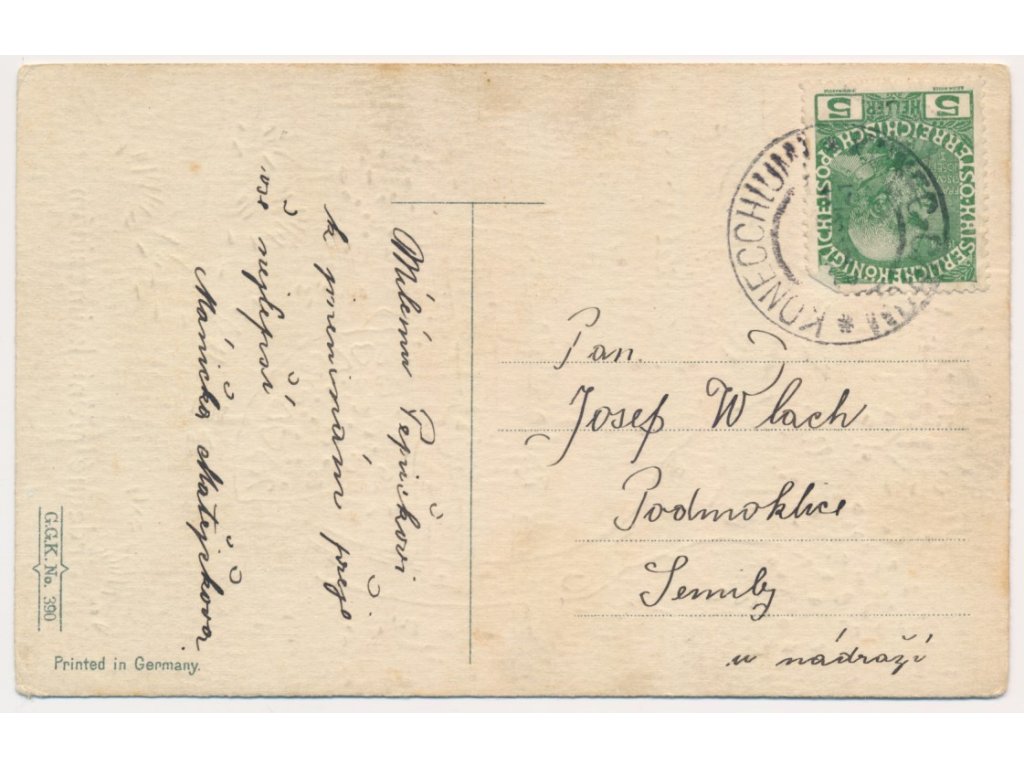 Milému Pepíčkovi
k jmeninám přeje
vše nejlepší
Mánička Matějčkova
Pan.
Josef Wlach
Podmoklice
Semily
u nádraží
5 HELLER 5
KAISERLICHE KÖNIGLICHE
ÖSTERREICHISCHE POST
KONECCHLUMÍ
G.G.K. No. 390
Printed in Germany.